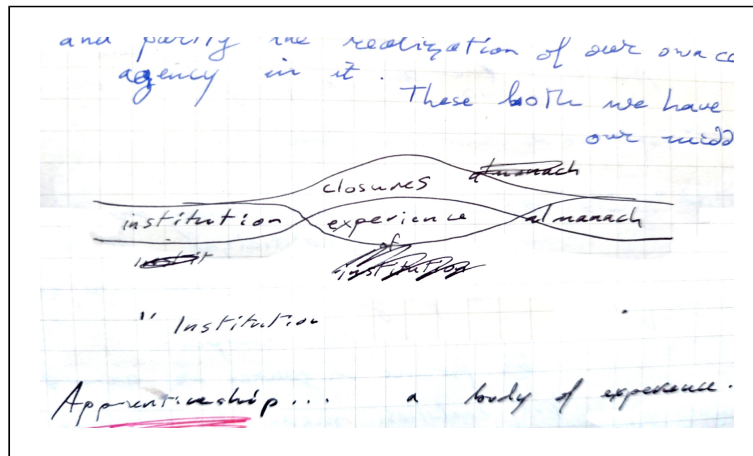 and purify the realization of our own co
agency in it.
These both we have
our midd
closures almanach
institution experience almanach
instit of
institution
" Institution
Apprenticeship... a body of experience.